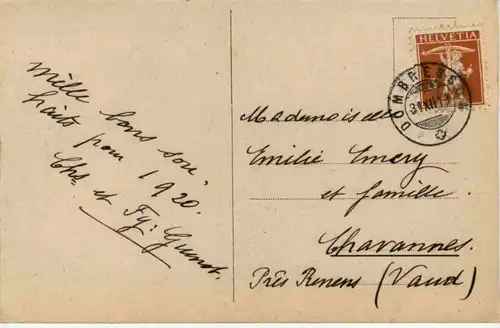 Mille bons sou-
haits pour 1920.
Chs et Fy: Guenot.
HELVETIA
DOMBRESSON
31 XII 19
Mademoiselle
Emilie Emery
et famille.
Chavannes.
Près Renens (Vaud)